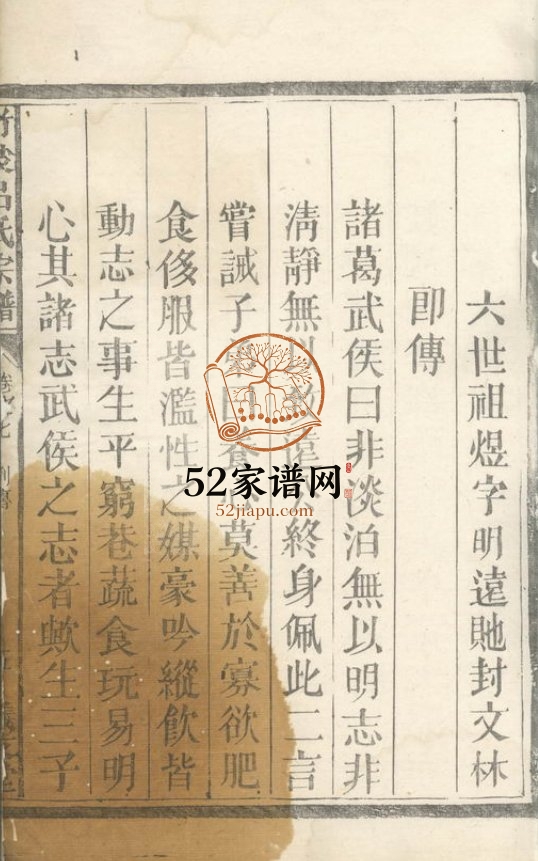 六世祖煜字明遠貤封文林
郎傳
諸葛武侯曰非淡泊無以明志非
淸靜無以致遠公終身佩此二言
嘗誡子養心莫善於寡欲肥
食侈服皆濫性之媒豪吟縱飲皆
動志之事生平窮巷蔬食玩易明
心其諸志武侯之志者歟生三子
呂氏宗譜
列傳
52家谱网
52jiapu.com